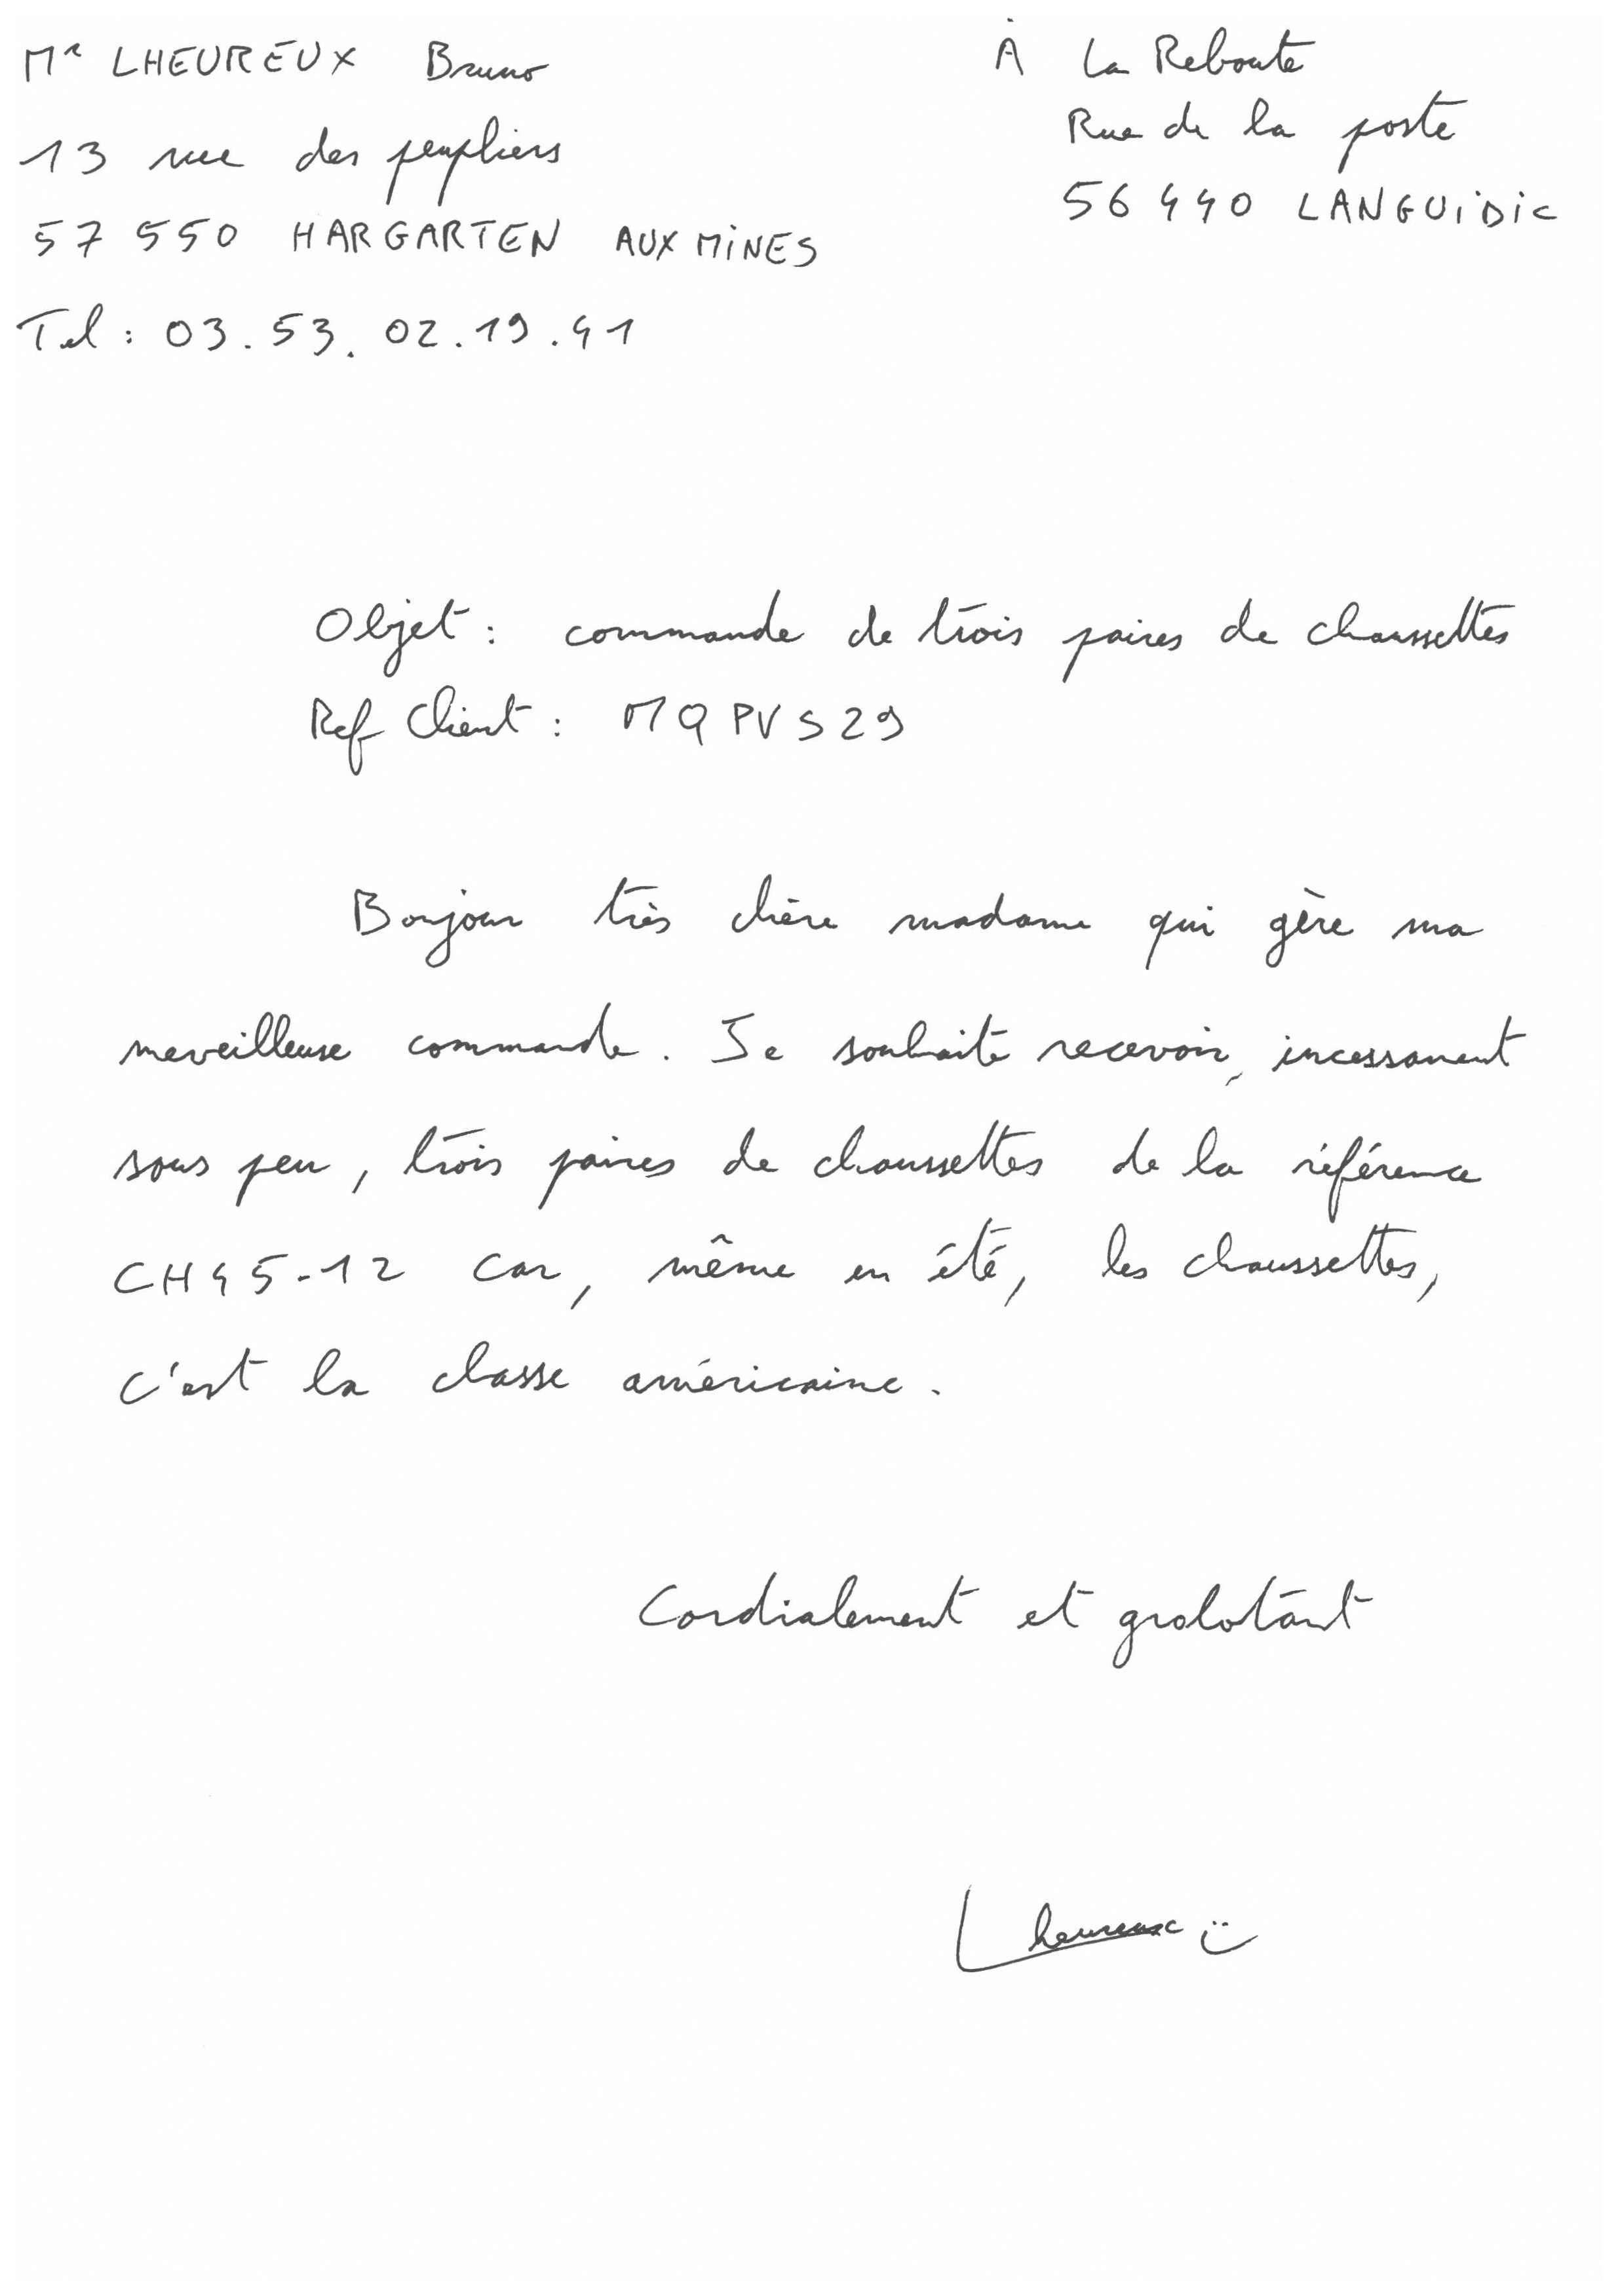 Mr LHEUREUX Bruno
13 rue des peupliers
57 550 HARGARTEN AUX MINES
Tel : 03.53.02.19.41
À La Reboute
Rue de la poste
56 440 LANGUiDiC
Objet : commande de trois paires de chaussettes
Ref Client : MQPVS29
Bonjour très chère madame qui gère ma
merveilleuse commande. Je souhaite recevoir, incessament
sous peu, trois paires de chaussettes de la référence
CH45-12 car, même en été, les chaussettes,
c'est la classe américaine.
Cordialement et grolotant
Lheureux